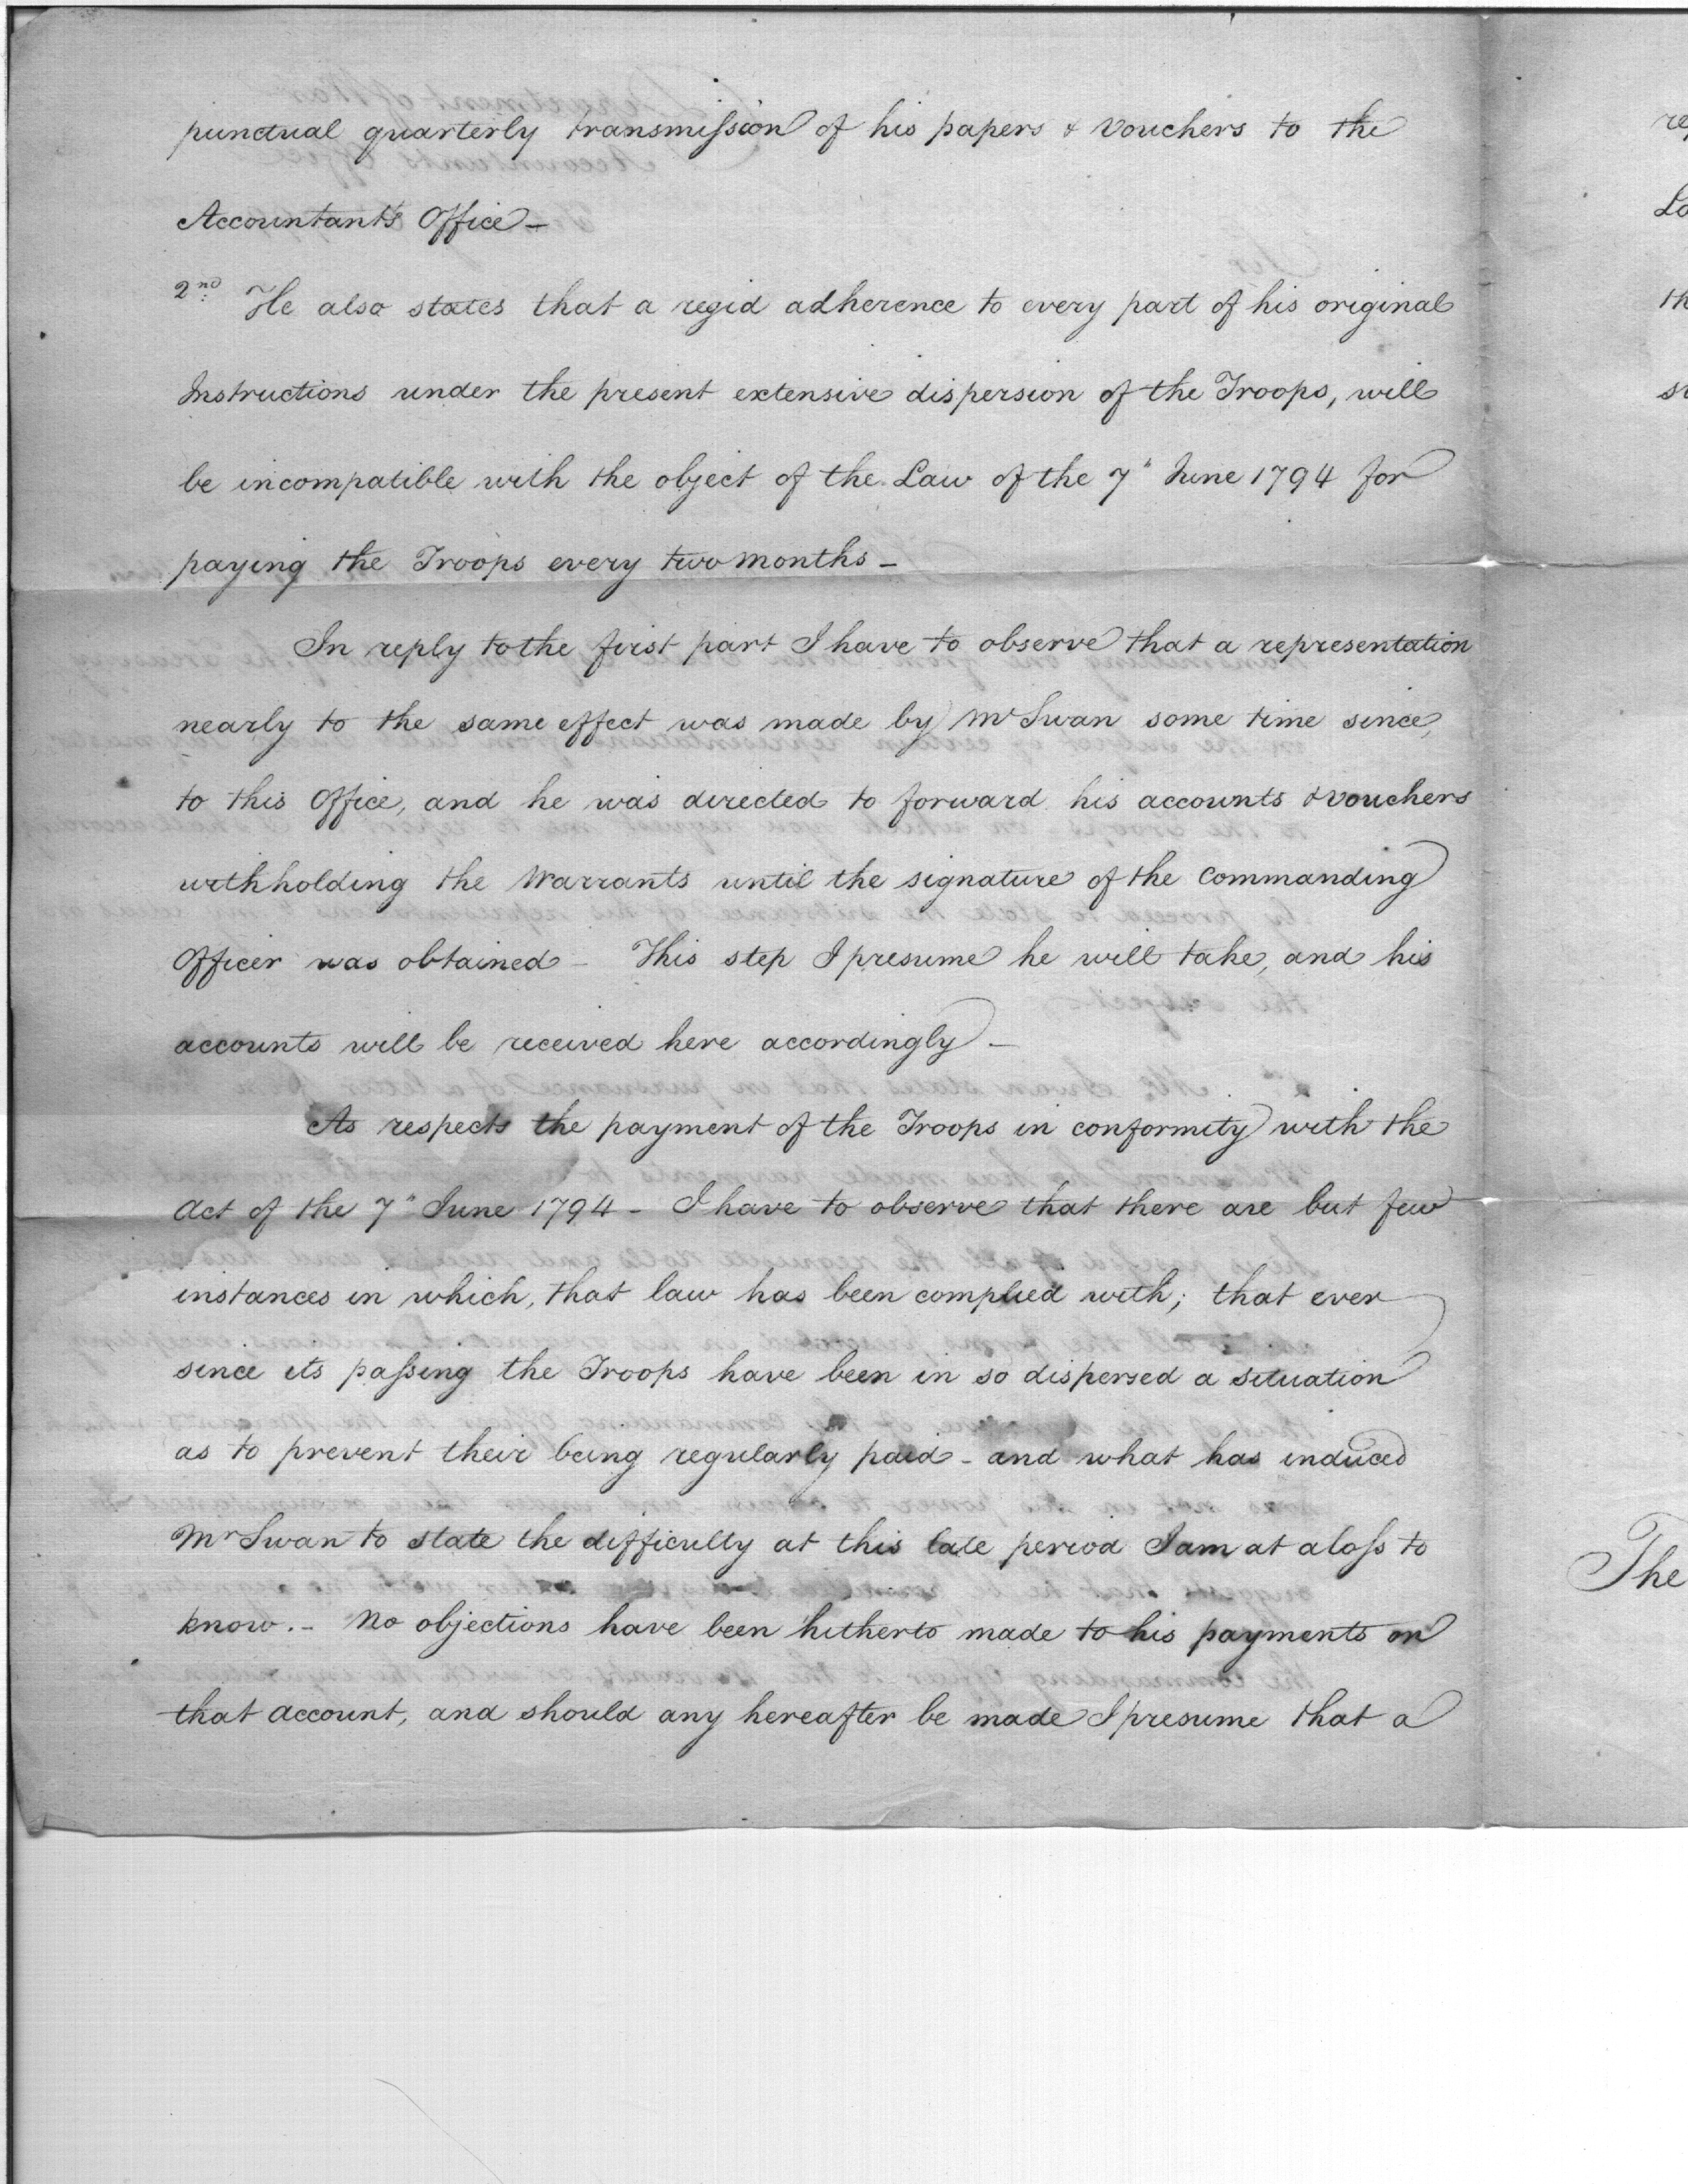 punctual quarterly transmission of his papers & Vouchers to the
Accountant's Office –
2nd He also states that a regid adherence to every part of his original
Instructions under the present extensive dispersion of the Troops, will
be incompatible with the object of the Law of the 7th June 1794 for
paying the Troops every two months –
In reply to the first part I have to observe that a representation
nearly to the same effect was made by Mr Swan some time since,
to this Office, and he was directed to forward his accounts & vouchers
withholding the Warrants until the signature of the Commanding
Officer was obtained – This step I presume he will take, and his
accounts will be received here accordingly –
As respects the payment of the Troops in conformity with the
Act of the 7th June 1794 – I have to observe that there are but few
instances in which, that law has been complied with; that ever
since its passing the Troops have been in so dispersed a situation
as to prevent their being regularly paid – and what has induced
Mr Swan to state the difficulty at this late period I am at a loss to
know. – No objections have been hitherto made to his payments on
that account, and should any hereafter be made I presume that a
The